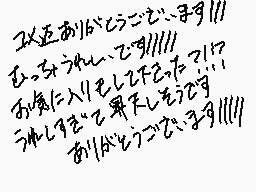 コメ返ありがとうございます!!!
むっちゃうれしいです!!!!!
お気に入りもして下さった?!!?
うれしすぎて昇天しそうです
ありがとうございます!!!!!